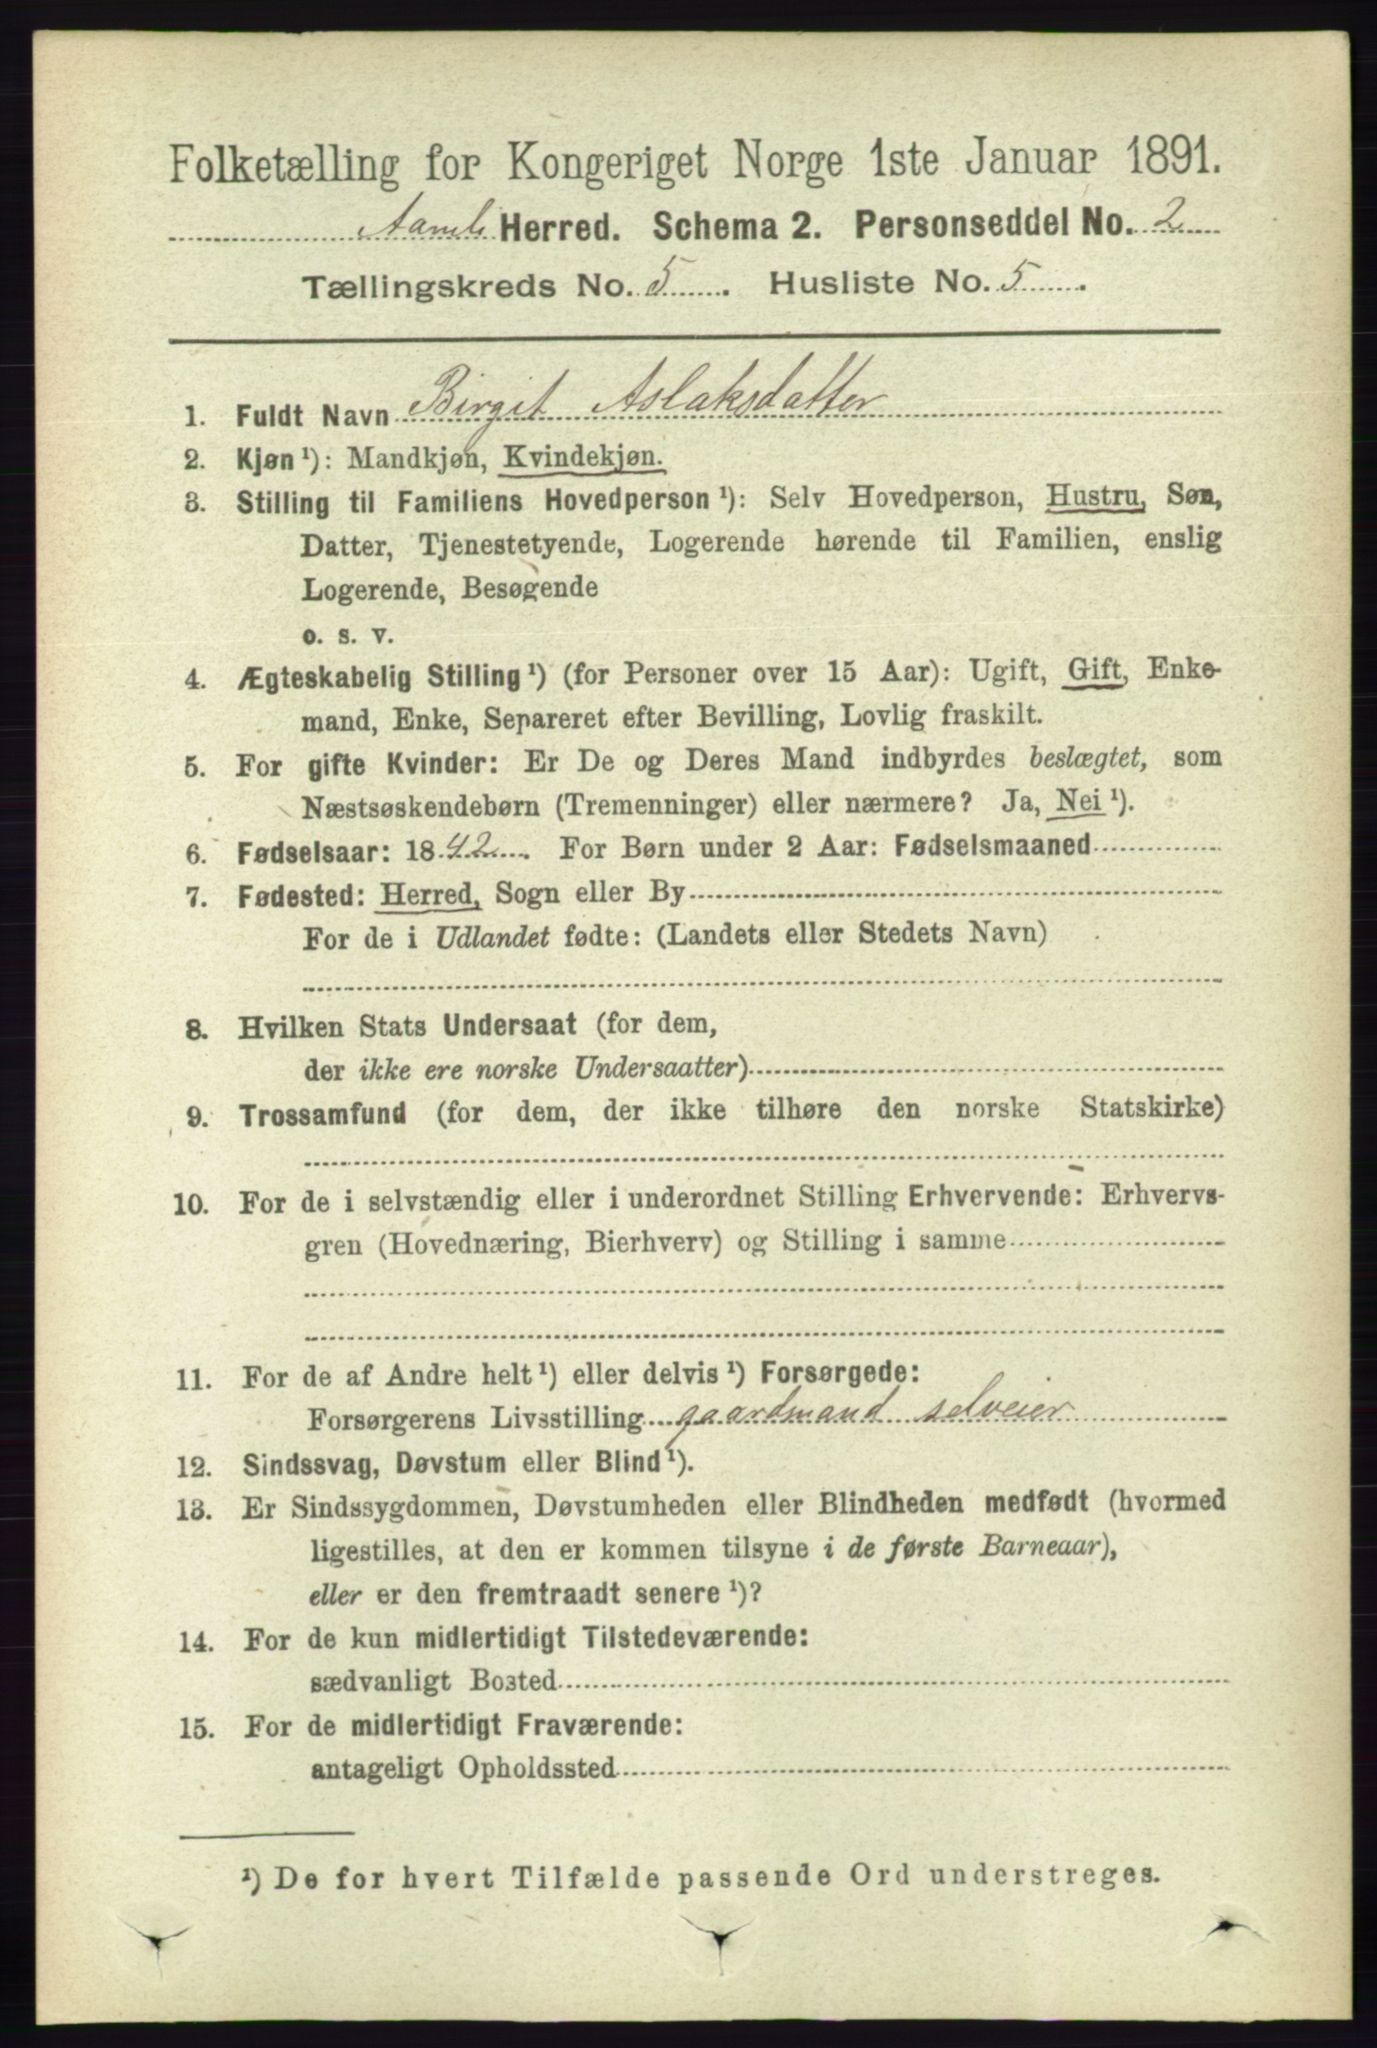 Folketælling for Kongeriget Norge 1ste Januar 1891.
Aamli Herred. Schema 2. Personseddel No. 2
Tællingskreds No. 5. Husliste No. 5.
1. Fuldt Navn Birgit Aslaksdatter
2. Kjøn ¹): Mandkjøn, Kvindekjøn.
3. Stilling til Familiens Hovedperson ¹): Selv Hovedperson, Hustru, Søn,
Datter, Tjenestetyende, Logerende hørende til Familien, enslig
Logerende, Besøgende
o. s. v.
4. Ægteskabelig Stilling ¹) (for Personer over 15 Aar): Ugift, Gift, Enke-
mand, Enke, Separeret efter Bevilling, Lovlig fraskilt.
5. For gifte Kvinder: Er De og Deres Mand indbyrdes beslægtet, som
Næstsøskendebørn (Tremenninger) eller nærmere? Ja, Nei ¹).
6. Fødselsaar: 1842. For Børn under 2 Aar: Fødselsmaaned
7. Fødested: Herred, Sogn eller By
For de i Udlandet fødte: (Landets eller Stedets Navn)
8. Hvilken Stats Undersaat (for dem,
der ikke ere norske Undersaatter)
9. Trossamfund (for dem, der ikke tilhøre den norske Statskirke)
10. For de i selvstændig eller i underordnet Stilling Erhvervende: Erhvervs-
gren (Hovednæring, Bierhverv) og Stilling i samme
11. For de af Andre helt ¹) eller delvis ¹) Forsørgede:
Forsørgerens Livsstilling gaardmand selveier
12. Sindssvag, Døvstum eller Blind ¹).
13. Er Sindssygdommen, Døvstumheden eller Blindheden medfødt (hvormed
ligestilles, at den er kommen tilsyne i de første Barneaar),
eller er den fremtraadt senere ¹)?
14. For de kun midlertidigt Tilstedeværende:
sædvanligt Bosted
15. For de midlertidigt Fraværende:
antageligt Opholdssted
¹) De for hvert Tilfælde passende Ord understreges.